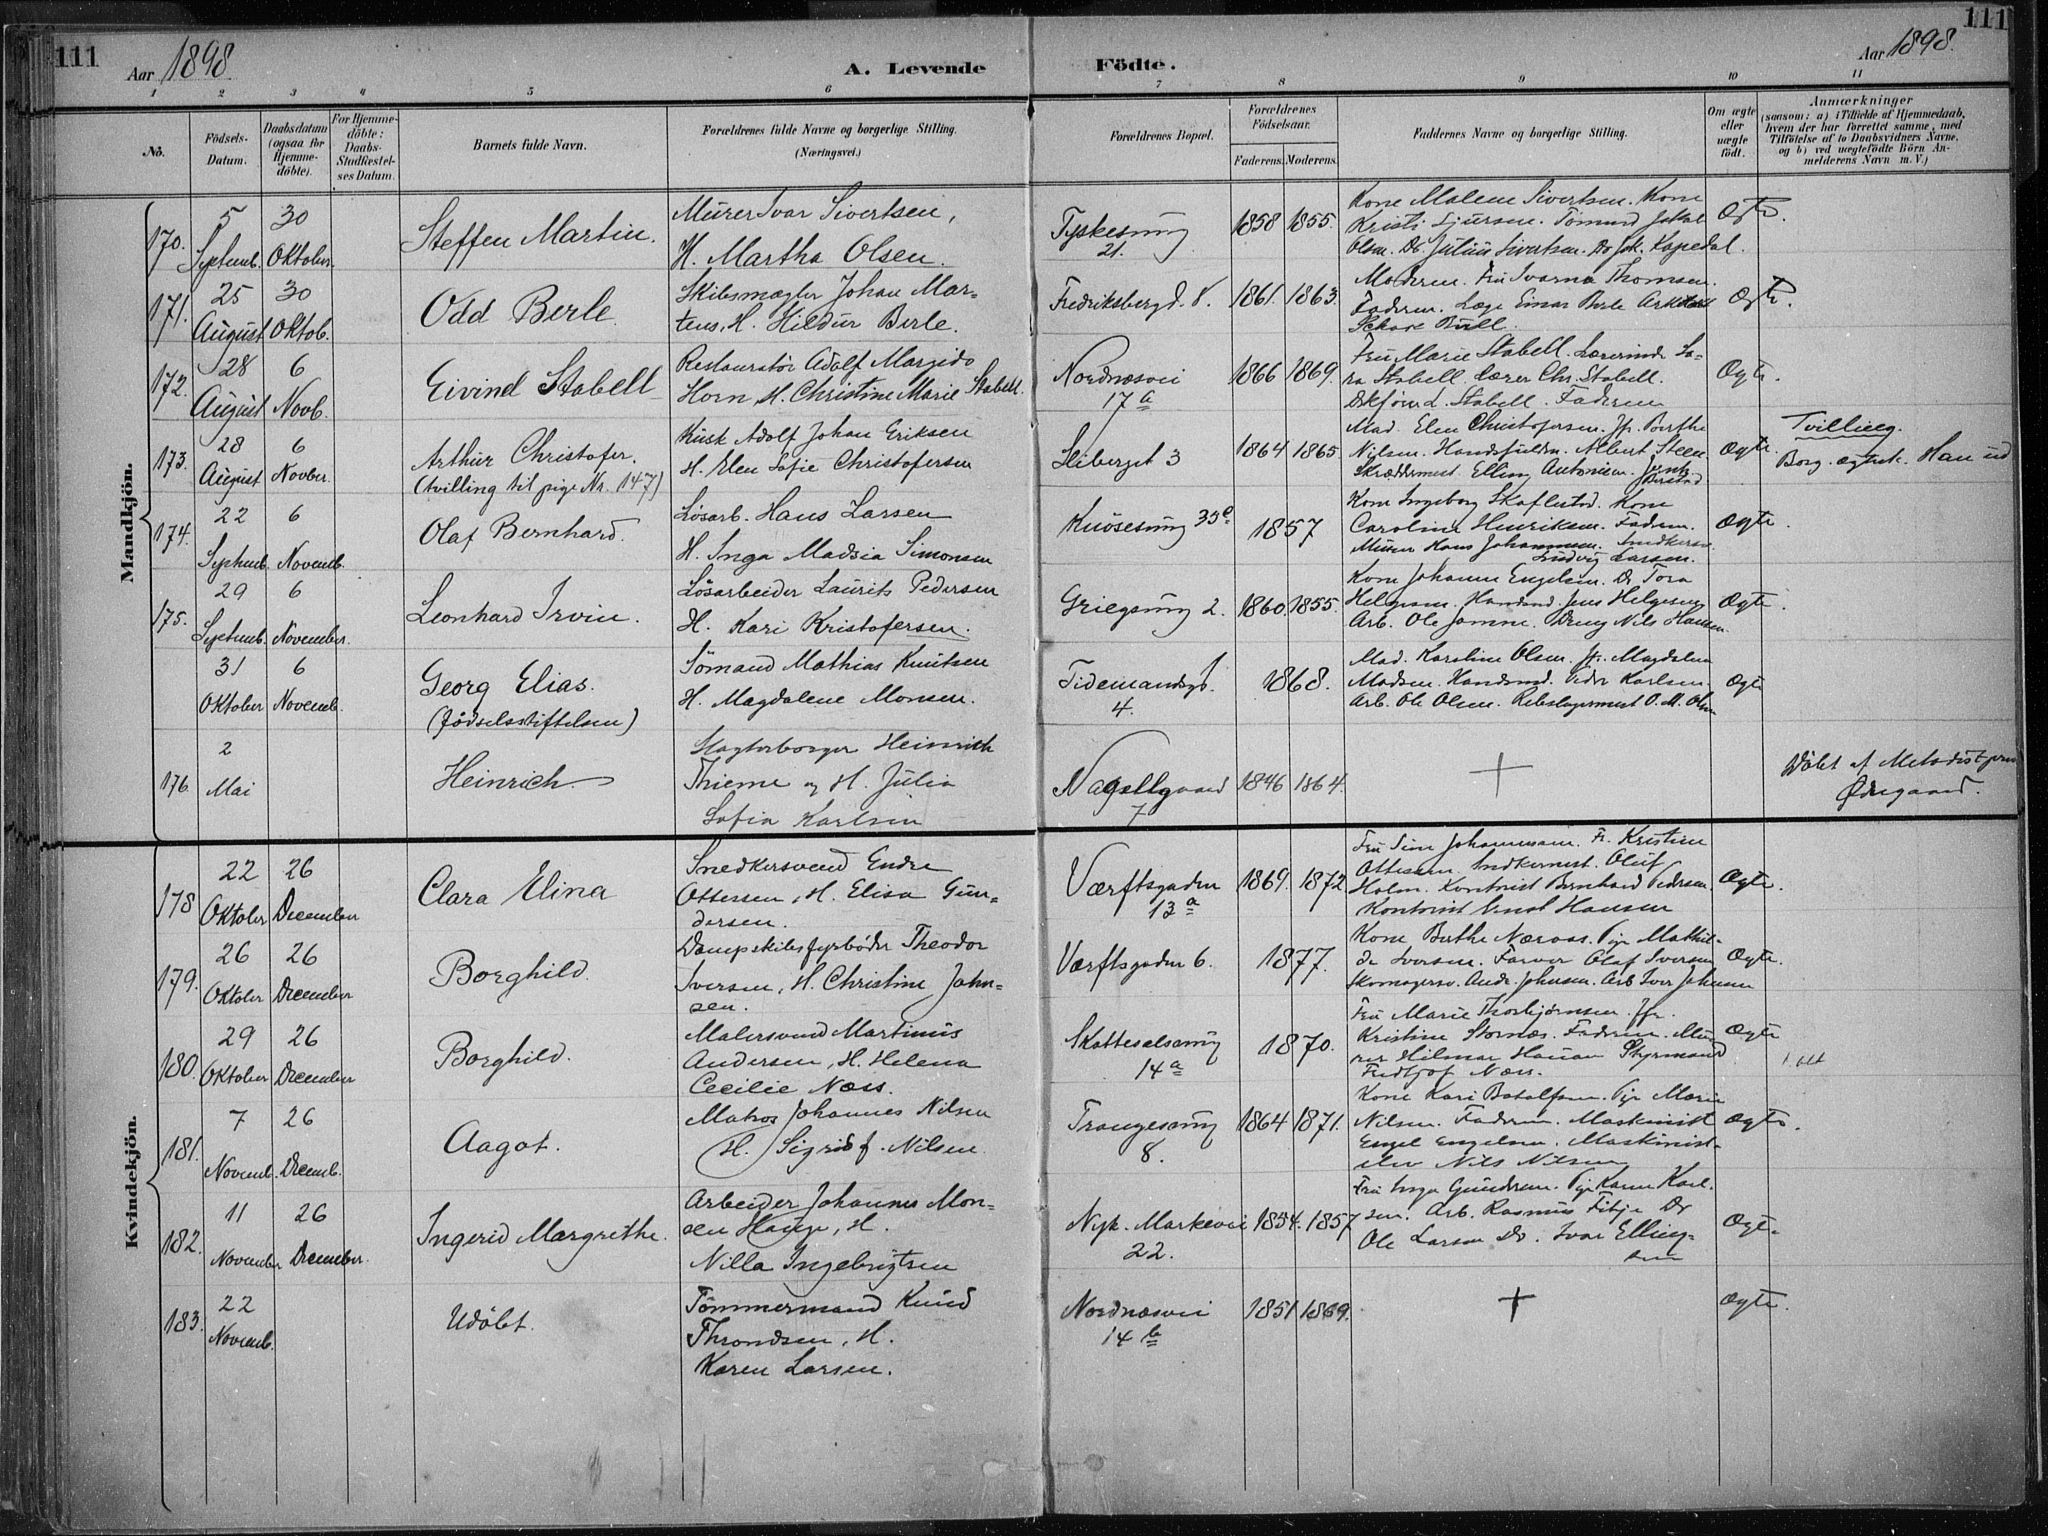 111
Aar 1898.
A. Levende
Födte.
Aar 1898.
111
1 2 3 4 5 6 7 8 9 10 11
No.
Födsels-
Datum.
Daabsdatum
(ogsaa for
Hjemme-
döbte).
For Hjemme-
döbte:
Daabs-
Stadfæstel-
ses Datum.
Barnets fulde Navn.
Forældrenes fulde Navne og borgerlige Stilling.
(Næringsvei.)
Forældrenes Bopæl.
Forældrenes
Födselsaar.
Faderens. Moderens.
Faddernes Navne og borgerlige Stilling.
Om ægte
eller
uægte
født.
Anmærkninger
(saasom: a) i Tilfælde af Hjemmedaab,
hvem der har forrettet samme, med
Tilföielse af to Daabsvidners Navne,
og b) ved uægtefödte Börn An-
melderens Navn m. V.)
Mandkjön.
170.
5
Septemb.
30
Oktober.
Steffen Martin.
Murer Ivar Sivertsen,
H. Martha Olsen.
Tyskesmug
21.
1858 1855.
Kone Malene Sivertsen. Kone
Kristi Sjursen. Sömand Johan
Olsen. Do. Julius Sivertsen. Do Joh. Kapedal.
Ægte.
171.
25
August
30
Oktob.
Odd Berle
Skibsmægler Johan Mar-
tens, H. Hildur Berle.
Fredriksbergd. 8.
1861. 1863.
Moderen. Fru Ivarna Thomsen.
Faderen. Læge Einar Berle Arkitekt
Schak Bull.
Ægte.
172.
28
August
6
Novb.
Eivind Stabell
Restauratör Adolf Margido
Horn, H. Christine Marie Stabell.
Nordnæsvei
17 a
1866 1869.
Fru Marie Stabell. Lærerinde Sa-
ra Stabell. Lærer Chr. Stabell.
Stabell. Faderen
Ægte.
173.
28
August
6
Novber.
Arthur Christofer.
(tvilling til pige Nr. 147)
Kusk Adolf Johan Eriksen
H. Elen Sofie Christofersen
Sliberget 3
1864 1865
Mad. Elen Christofersen. Jfr. Berthe
Nilsen. Handelsfuldm. Albert Steen
Skræddermest. Elling Antonisen.
Ægte.
Tvilling.
174.
22
Septemb.
6
Novemb.
Olaf Bernhard.
Løsarb. Hans Larsen
H. Inga Madsia Simonsen
Knösesmug 35 c
1857
Kone Ingeborg Skaflestad. Kone
Caroline Henriksen. Faderen.
Murer Hans Johannesen. Snedkersv.
Ludvig Larsen.
Ægte.
175.
29
Septemb.
6
November.
Leonhard Irvin.
Lösarbeider Laurits Pedersen
H. Kari Kristofersen.
Griegsmug 2.
1860. 1855.
Kone Johanne Engelsen. Do Tora
Helgesen. Handsmd. Jens Helgesen
Arb. Ole Jamne. Dreng Nils Hansen.
Ægte.
31
Oktober
6
Novemb.
Georg Elias.
(fødselsstiftelsen)
Sömand Mathias Knutsen
H. Magdalene Monsen.
Tidemandsg.
4.
1868.
Mad. Karoline Olsen. Jfr. Magdalena
Madsen. Handsmd. Peder Karlsen.
Arb. Ole Olsen. Rebslagermest O. M. Olsen
Ægte
176.
2
Mai
Heinrich
Slagterborger Heinrich
Thieme og H. Julia
Sofia Karlsen
Nagellgaard
7
1846 1864.
Döbt af Metodistpres
Ødegaard.
Kvindekjön.
178
22
Oktober
26
December
Clara Elina
Snedkersvend Endre
Ottersen, H. Elisa Gun-
dersen.
Værftsgaden
13 a
1869. 1872
Fru Sine Johannesen. Fr. Kristine
Ottesen. Snedkermest. Oluf
Holm. Kontorist Bernhard Pedersen.
Kontorist Hansen
Ægte.
179.
26
Oktober
26
December
Borghild.
Dampskibsfyrböder Theodor
Iversen, H. Christine John-
sen.
Værftsgaden 6.
1877.
Kone Berthe Næraas. Pige Mathil-
de Iversen. Farver Olaf Iversen
Skomagersv. Andr. Johnsen. Arb. Iver Johnsen
Ægte.
180.
29
Oktober
26
December
Borghild.
Malersvend Martinus
Andersen, H. Helena
Cecilie Næss.
Skottesalsmug
14 a
1870.
Fru Marie Thorbjörnsen. Jfr.
Kristine Stornæs. Faderen. Mu-
rer Hilmar Hauan Styrmand
Fridtjof Næss.
Ægte
181.
7
Novemb.
26
Decemb.
Aagot.
Matros Johannes Nilsen
H. Sigrid f. Nilsen
Trangesmug
8.
1864 1871.
Kone Kari Botolfsen. Pige Marie
Nilsen. Faderen. Maskinist
Engel Engelsen. Maskinist-
elev Nils Nilsen
Ægte.
182.
11
November
26
December.
Ingerid Margrethe.
Arbeider Johannes Mon-
sen Hauge, H.
Nilla Ingebrigtsen
Nyk. Markevei
22.
1854. 1857
Fru Inga Gundersen. Pige Karen Karl-
sen. Arb. Rasmus Fitje Do
Ole Larsen Do. Ivar Elling-
sen
Ægte.
183.
22
Novemb.
Udöbt.
Tömmermand Knud
Throndsen, H.
Karen Larsen.
Nordnæsvei
14 b
1851 1869.
Ægte.